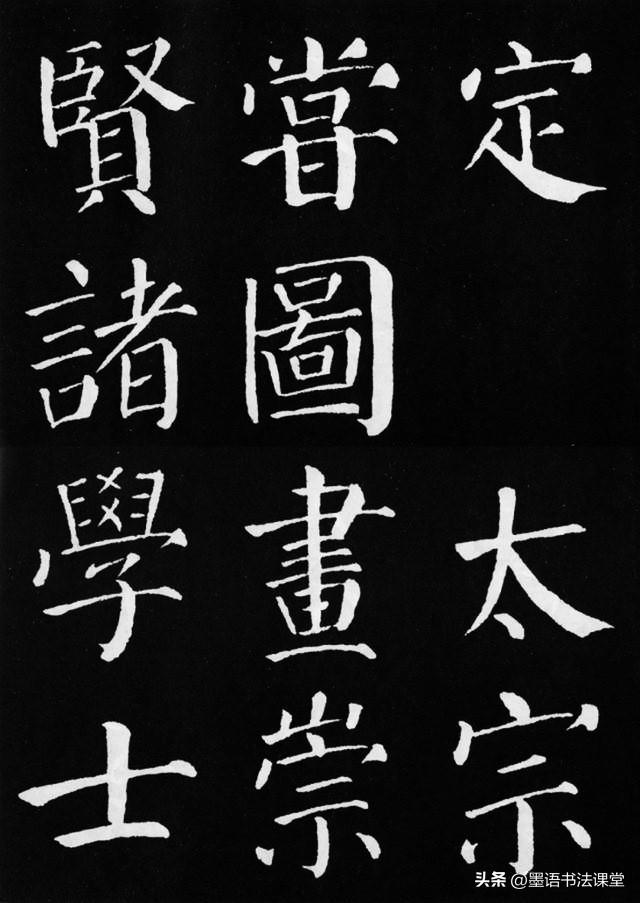 定 太宗
嘗圖畫崇
賢諸學士
头条 @墨语书法课堂